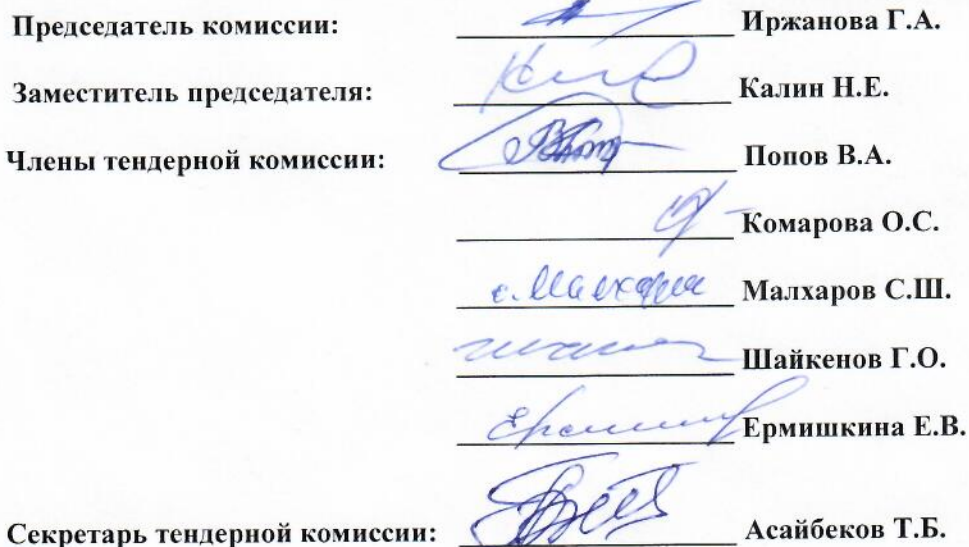 Председатель комиссии: Иржанова Г.А.
Заместитель председателя: Калин Н.Е.
Члены тендерной комиссии: Попов В.А.
Комарова О.С.
с.Малхаров Малхаров С.Ш.
Шайкенов Г.О.
Ермишкина Е.В.
Секретарь тендерной комиссии: Асайбеков Т.Б.